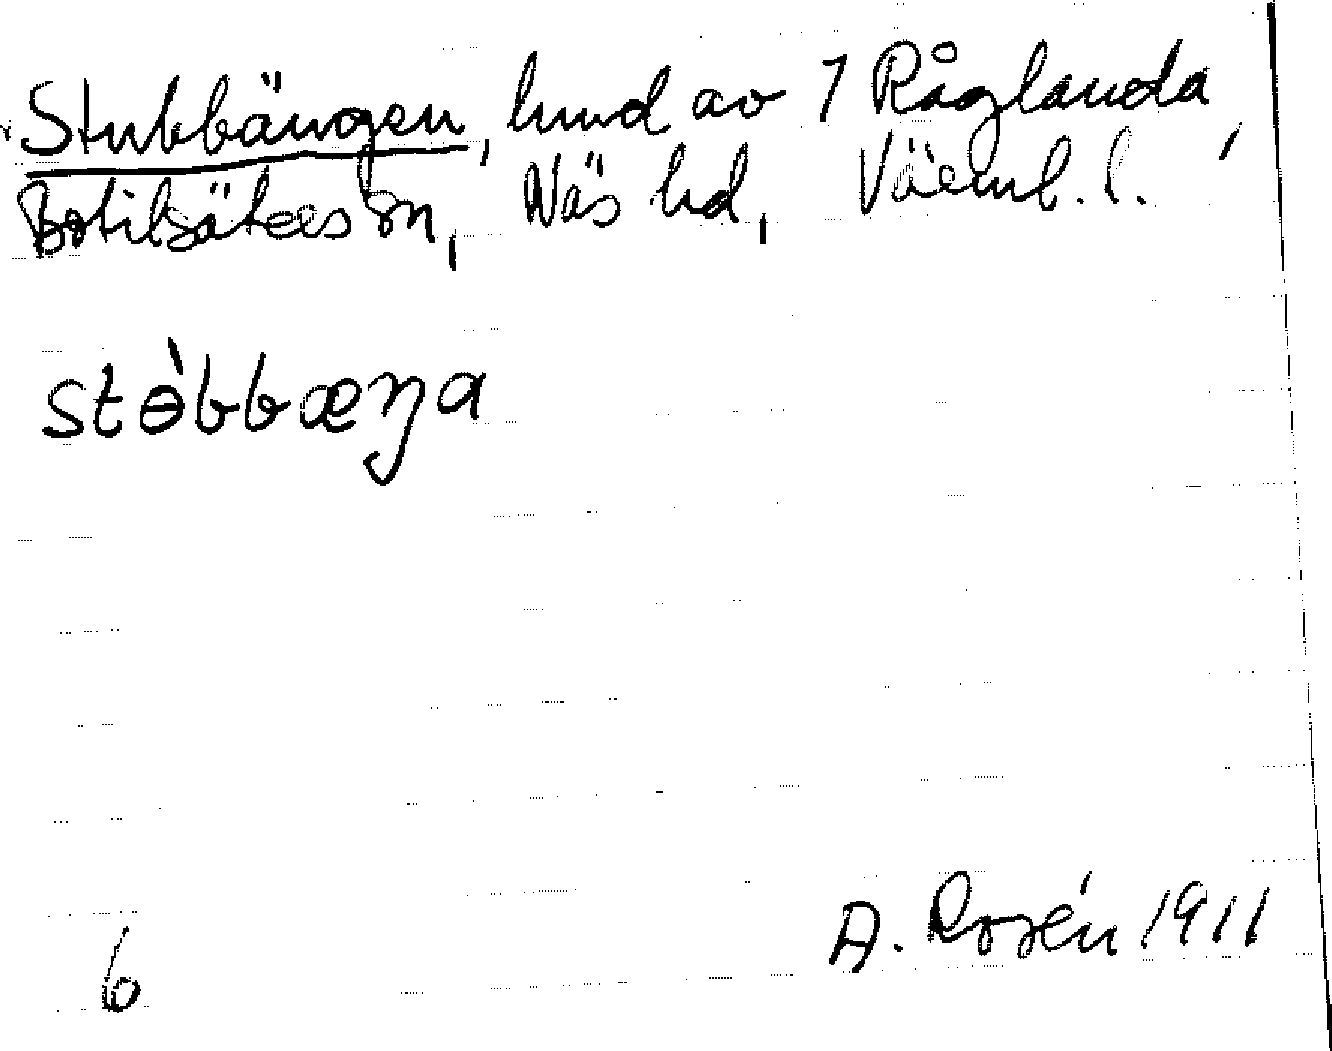 Stubbängen, lund av 1 Råglanda,
Botilsäters sn, Näs hd, Värml. l.
stɵ̀bbæŋa
6
A. Rosén 1911